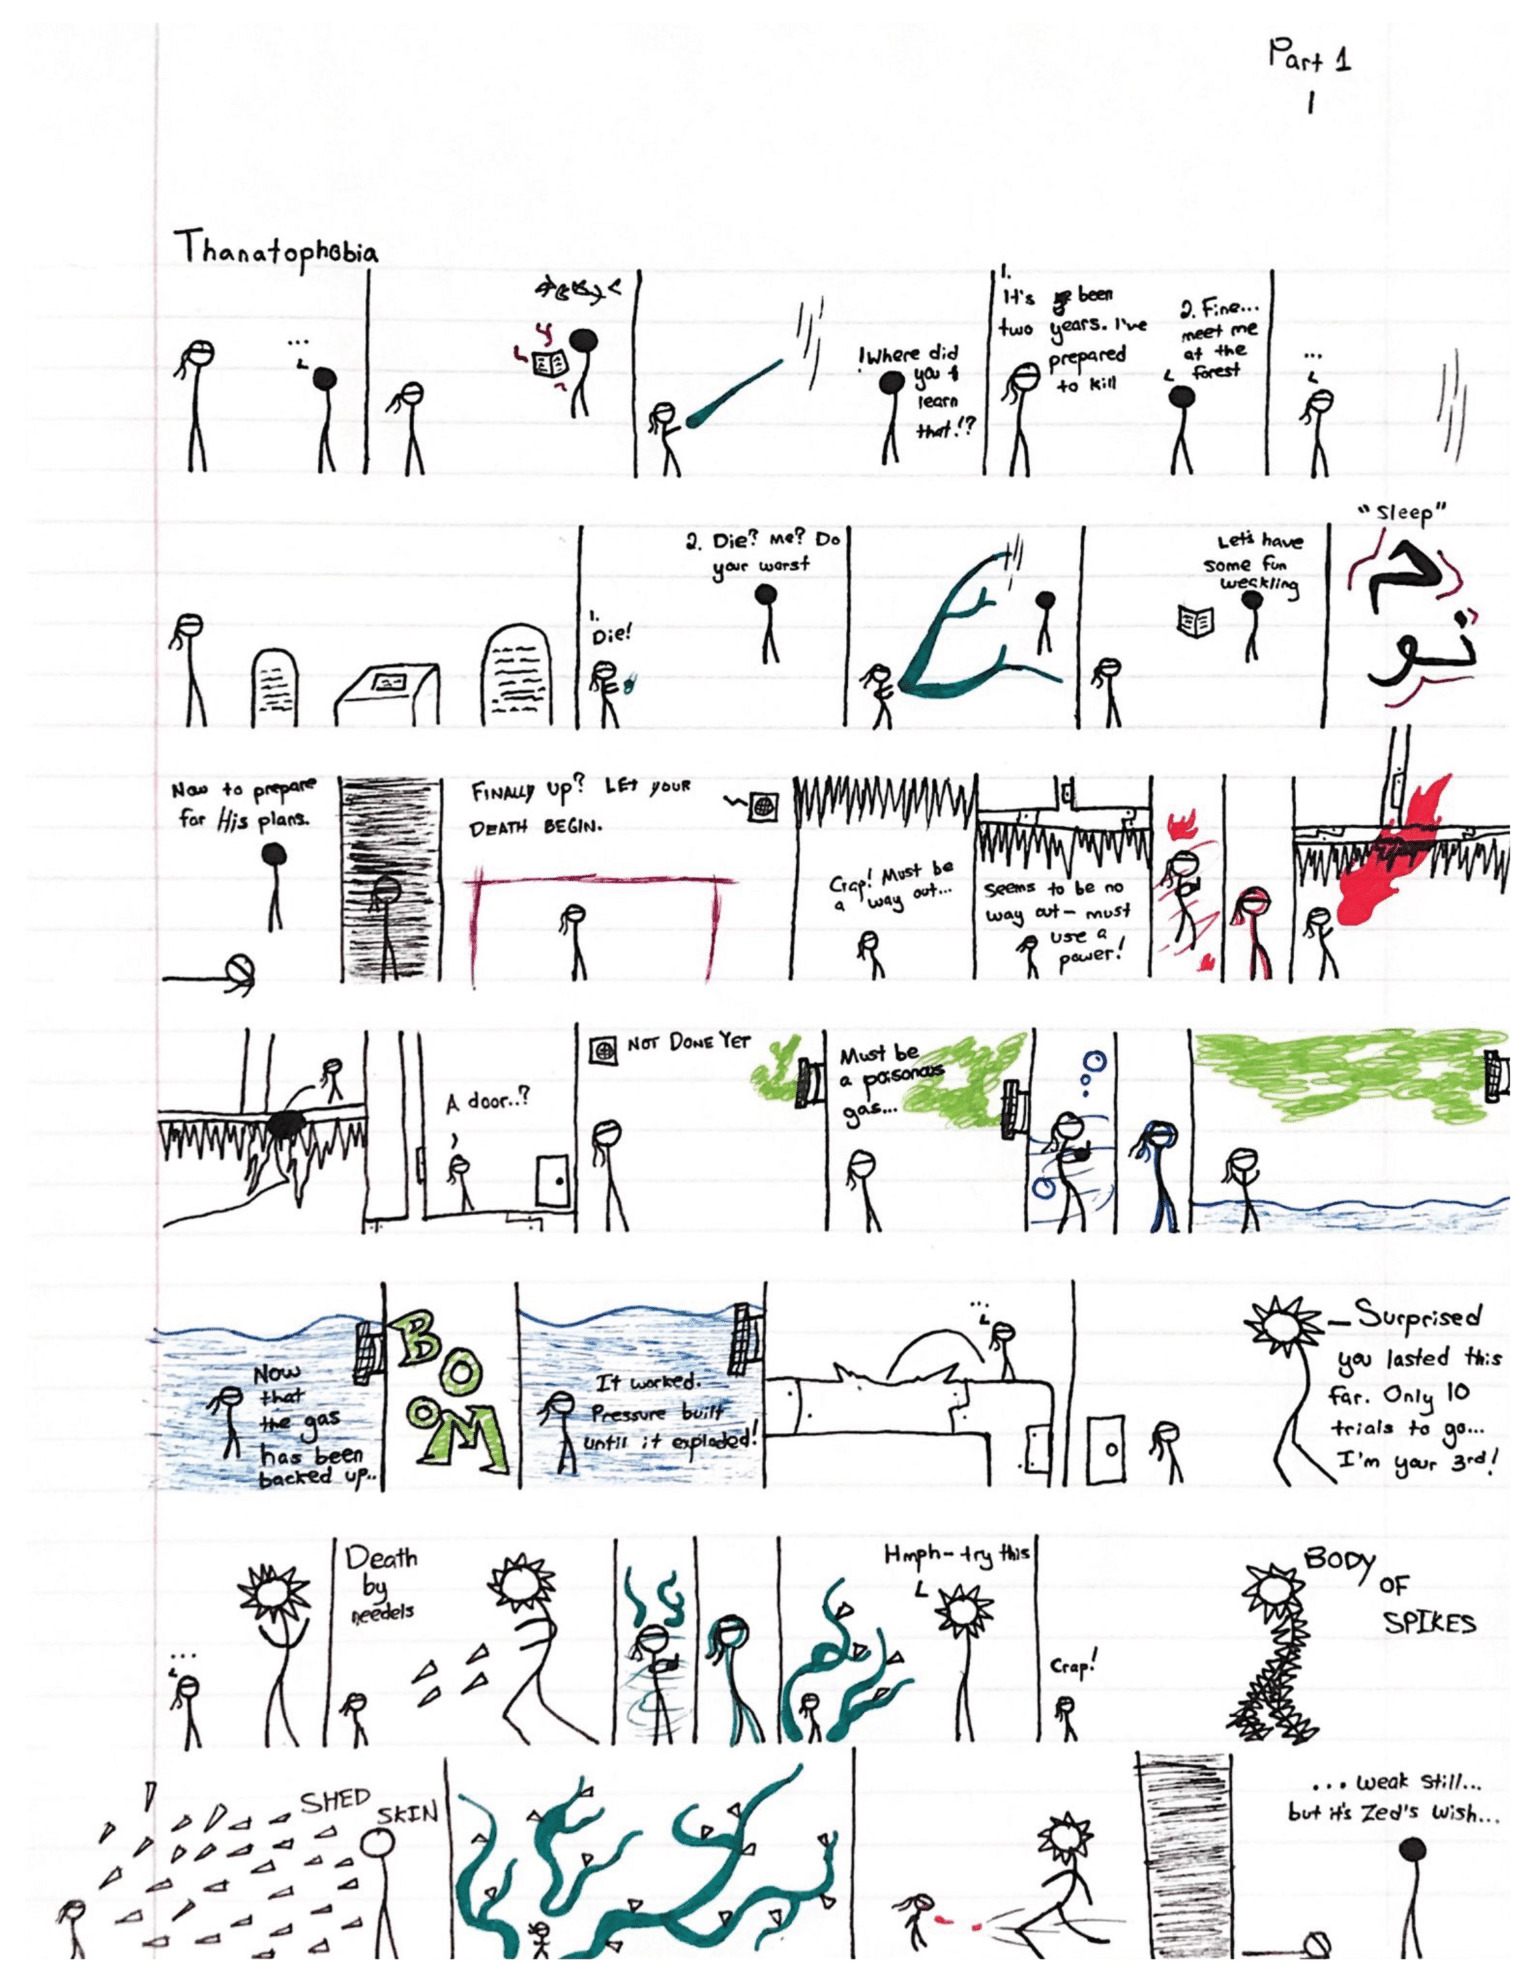 Part 1
1
Thanatophobia
...
!Where did
you
learn
that!?
1.
It's been
two years. I've
prepared
to kill
2. Fine...
meet me
at the
forest
...
1.
Die!
2. Die? Me? Do
your worst
Let's have
some fun
weakling
"Sleep"
Now to prepare
for His plans.
FINALLY UP? LET YOUR
DEATH BEGIN.
Crap! Must be
a way out...
Seems to be no
way out- must
use a
power!
A door..?
NOT DONE YET
Must be
a poisonous
gas...
Now
that
the gas
has been
backed up..
BOOM
It worked.
Pressure built
until it exploded!
...
Surprised
you lasted this
far. Only 10
trials to go...
I'm your 3rd!
...
Death
by
needels
Hmph-try this
Crap!
BODY
OF
SPIKES
SHED
SKIN
...weak still...
but it's Zed's wish...